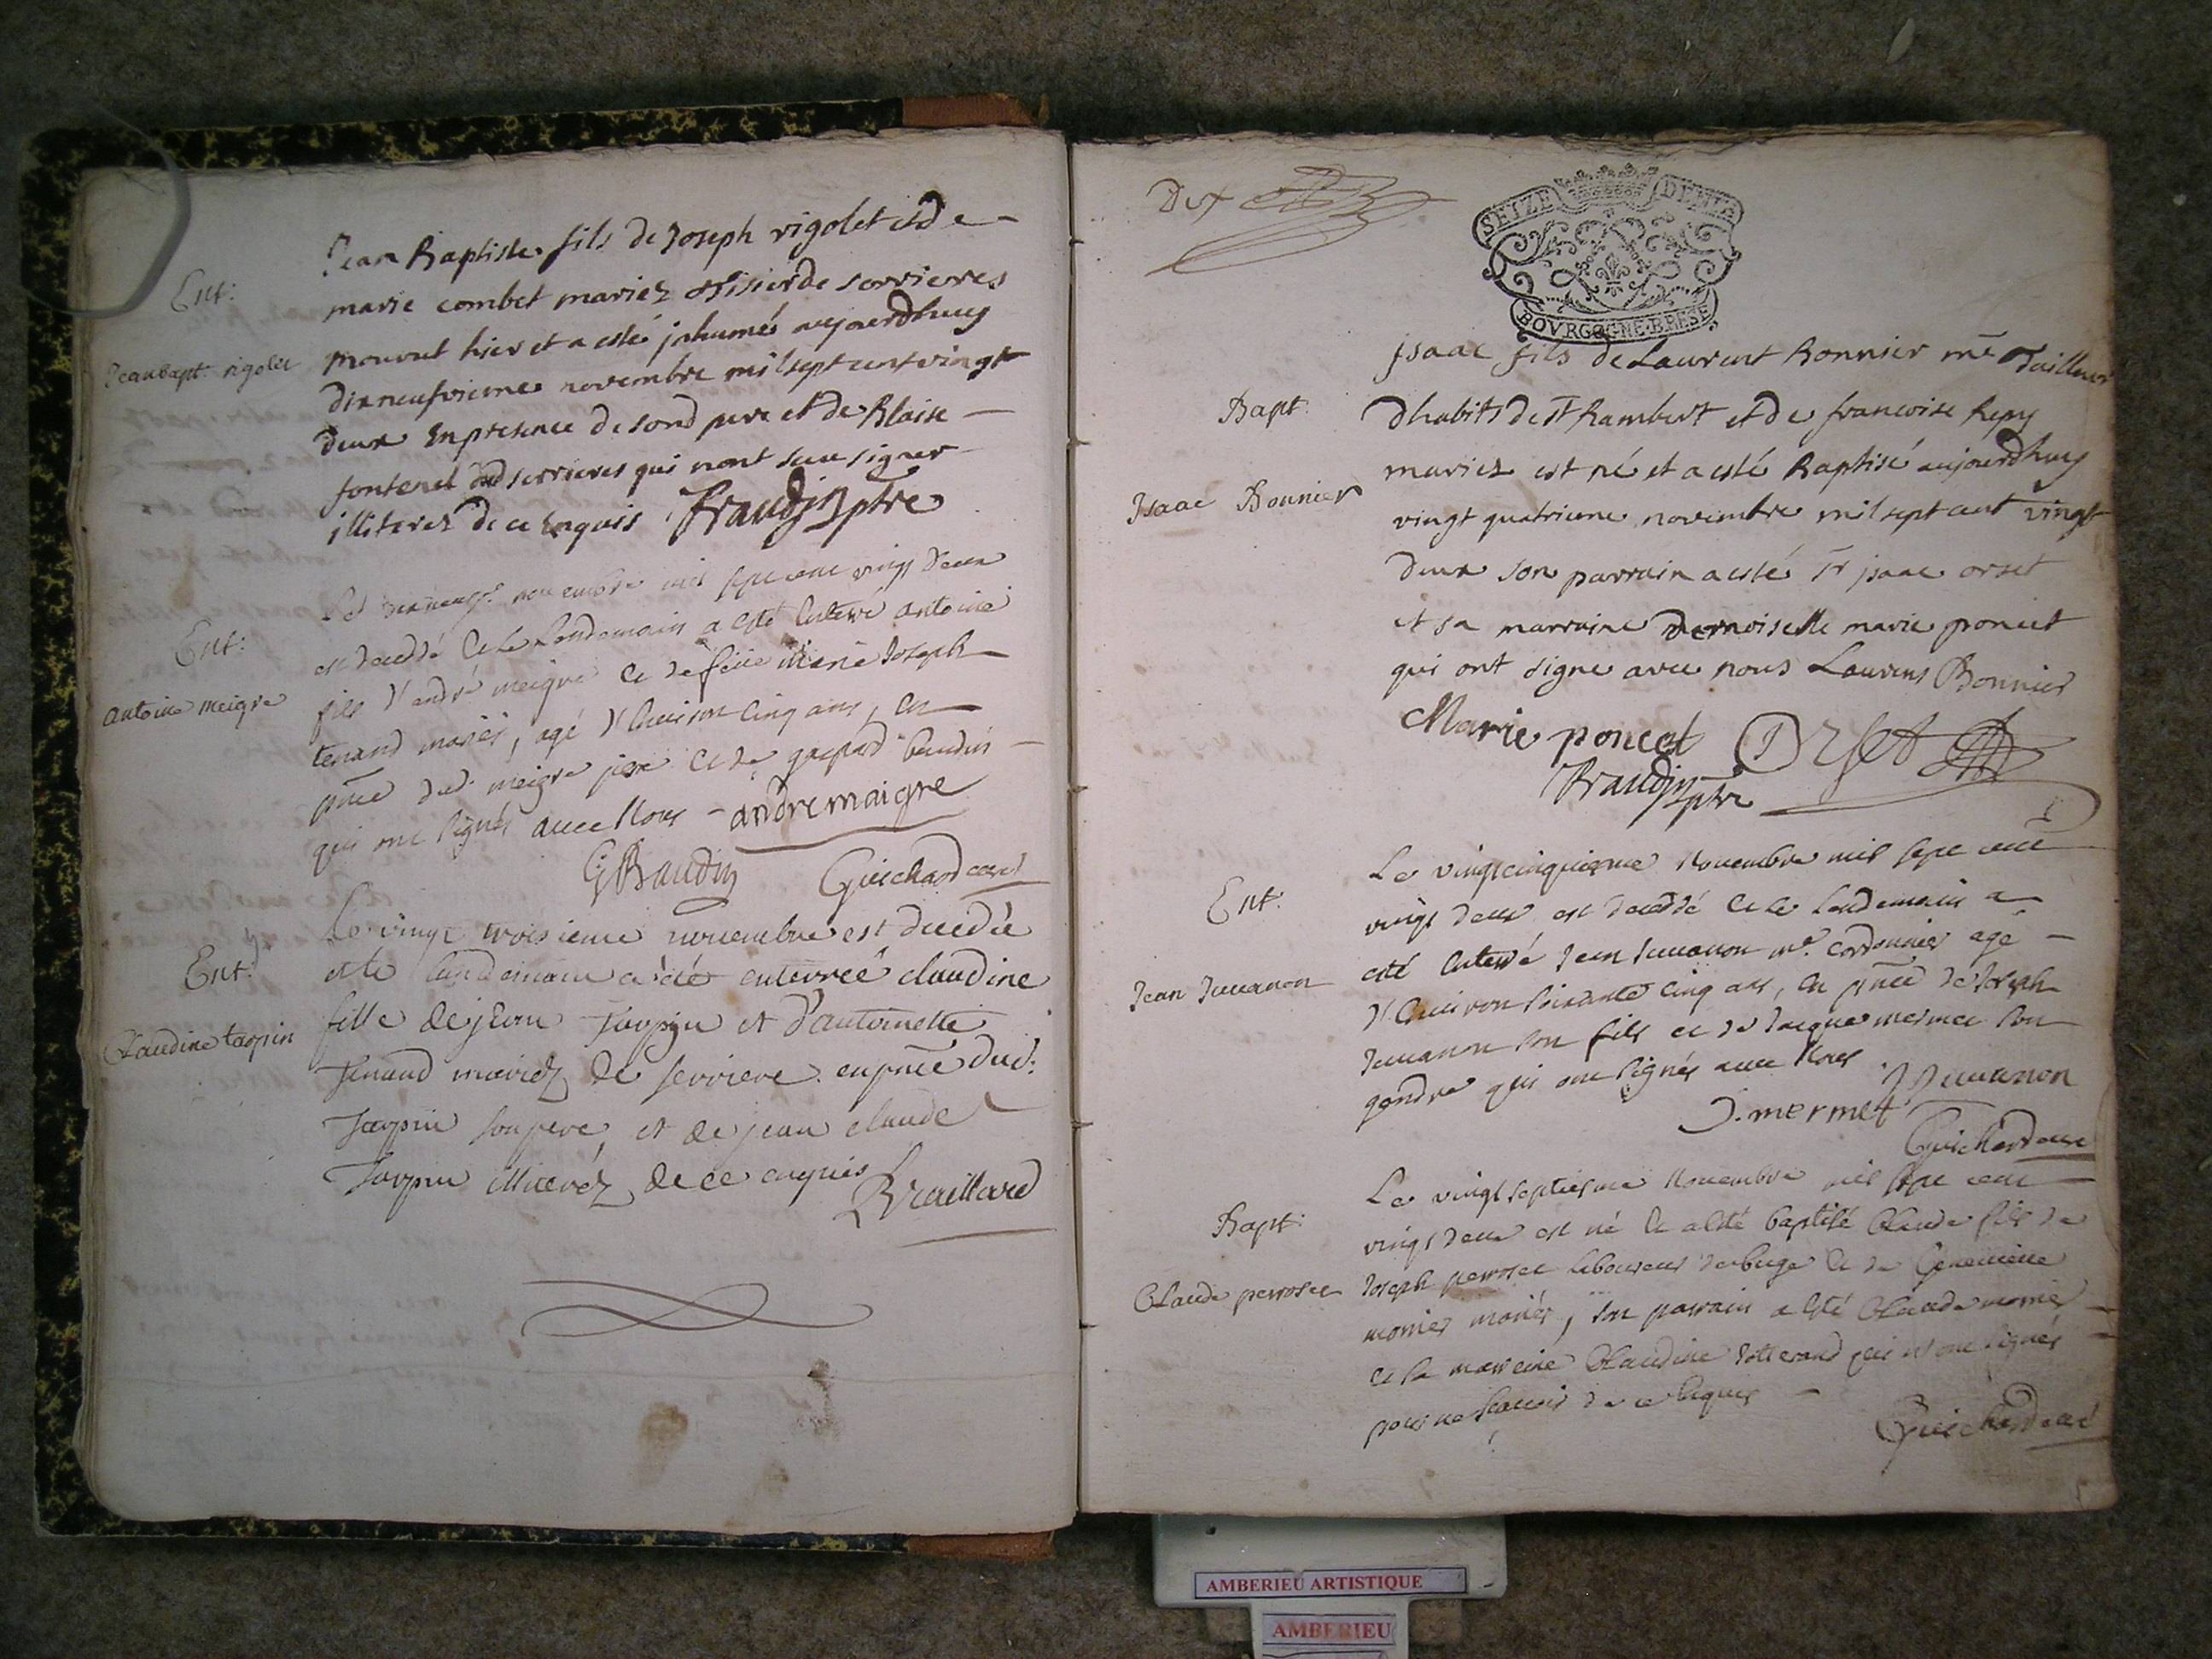 Ent:
Jean bapt: rigolet
Jean Baptiste fils de Joseph rigolet et de
marie combet mariez de serrieres
mourut hier et a esté jnhumé aujourdhuy
dixneufvieme novembre mil sept cent vingt
deux En presence de sond pere et de Blaise
fontenel dud serrieres qui nont sceu signer
illiterez de ce Enquis Fraudin ptre
Ent:
antoine meigre
Le novembre mil sept cent vingt deux
est decedé et le Lendemain a esté Enterré antoine
fils d'andré meigre et de feüe Marie Joseph
tenand mariés, agé d'Environ cinq ans, en
pñce dud. meigre pere et de gaspard baudin
qui ont signés avec Nous andre maigre
G Baudin Guichard curé
Ent:
Claudine tarpin
Le vingt troisieme novembre est decedée
et le landemain a été enterreé claudine
fille de jean Tarpin et d'antoinette
Tenand mariéz de serriere en pñce dud:
Tarpin son pere et de jean claude
Tarpin illiteréz de ce enquis Braillard
Dix
SEIZE DENIE
BOVRGOGNE BRESE
Bapt:
Isaac Bonnier
jsaac fils de Laurent Bonnier mre Tailleur
dhabits de St Rambert et de francoise
mariez est né et a esté Baptisé aujourdhuy
vingt quatrieme novembre mil sept cent vingt
deux son parrain a esté Sr jsaac orset
et sa marraine demoiselle marie poncet
qui ont signe avec nous Laurens Bonnier
Marie poncet Orset
Fraudin ptre
Ent:
Jean Juuanon
Le vingtcinquiesme Nouembre mil sept cent
vingt deux est decedé et le Lendemain a
esté Enterré Jean Juuanon me. Cordonnier agé
d'Environ soixante cinq ans, En pñce de Joseph
Juuanon son fils et de Jacque mermet son
gendre qui ont signés avec Nous J Juuanon
J. mermet
Guichard curé
Bapt:
Claude perroset
Le vingtseptiesme Nouembre mil sept cent
vingt deux est né et a Esté baptisé Claude fils de
Joseph perroset laboureur et de Geneuieue
monier mariés, son parrain a Esté Claude monier
et sa marreine Claudine qui n'ont signés
pour ne scauoir de ce Enquis
Guichard curé
AMBERIEU ARTISTIQUE
AMBERIEU